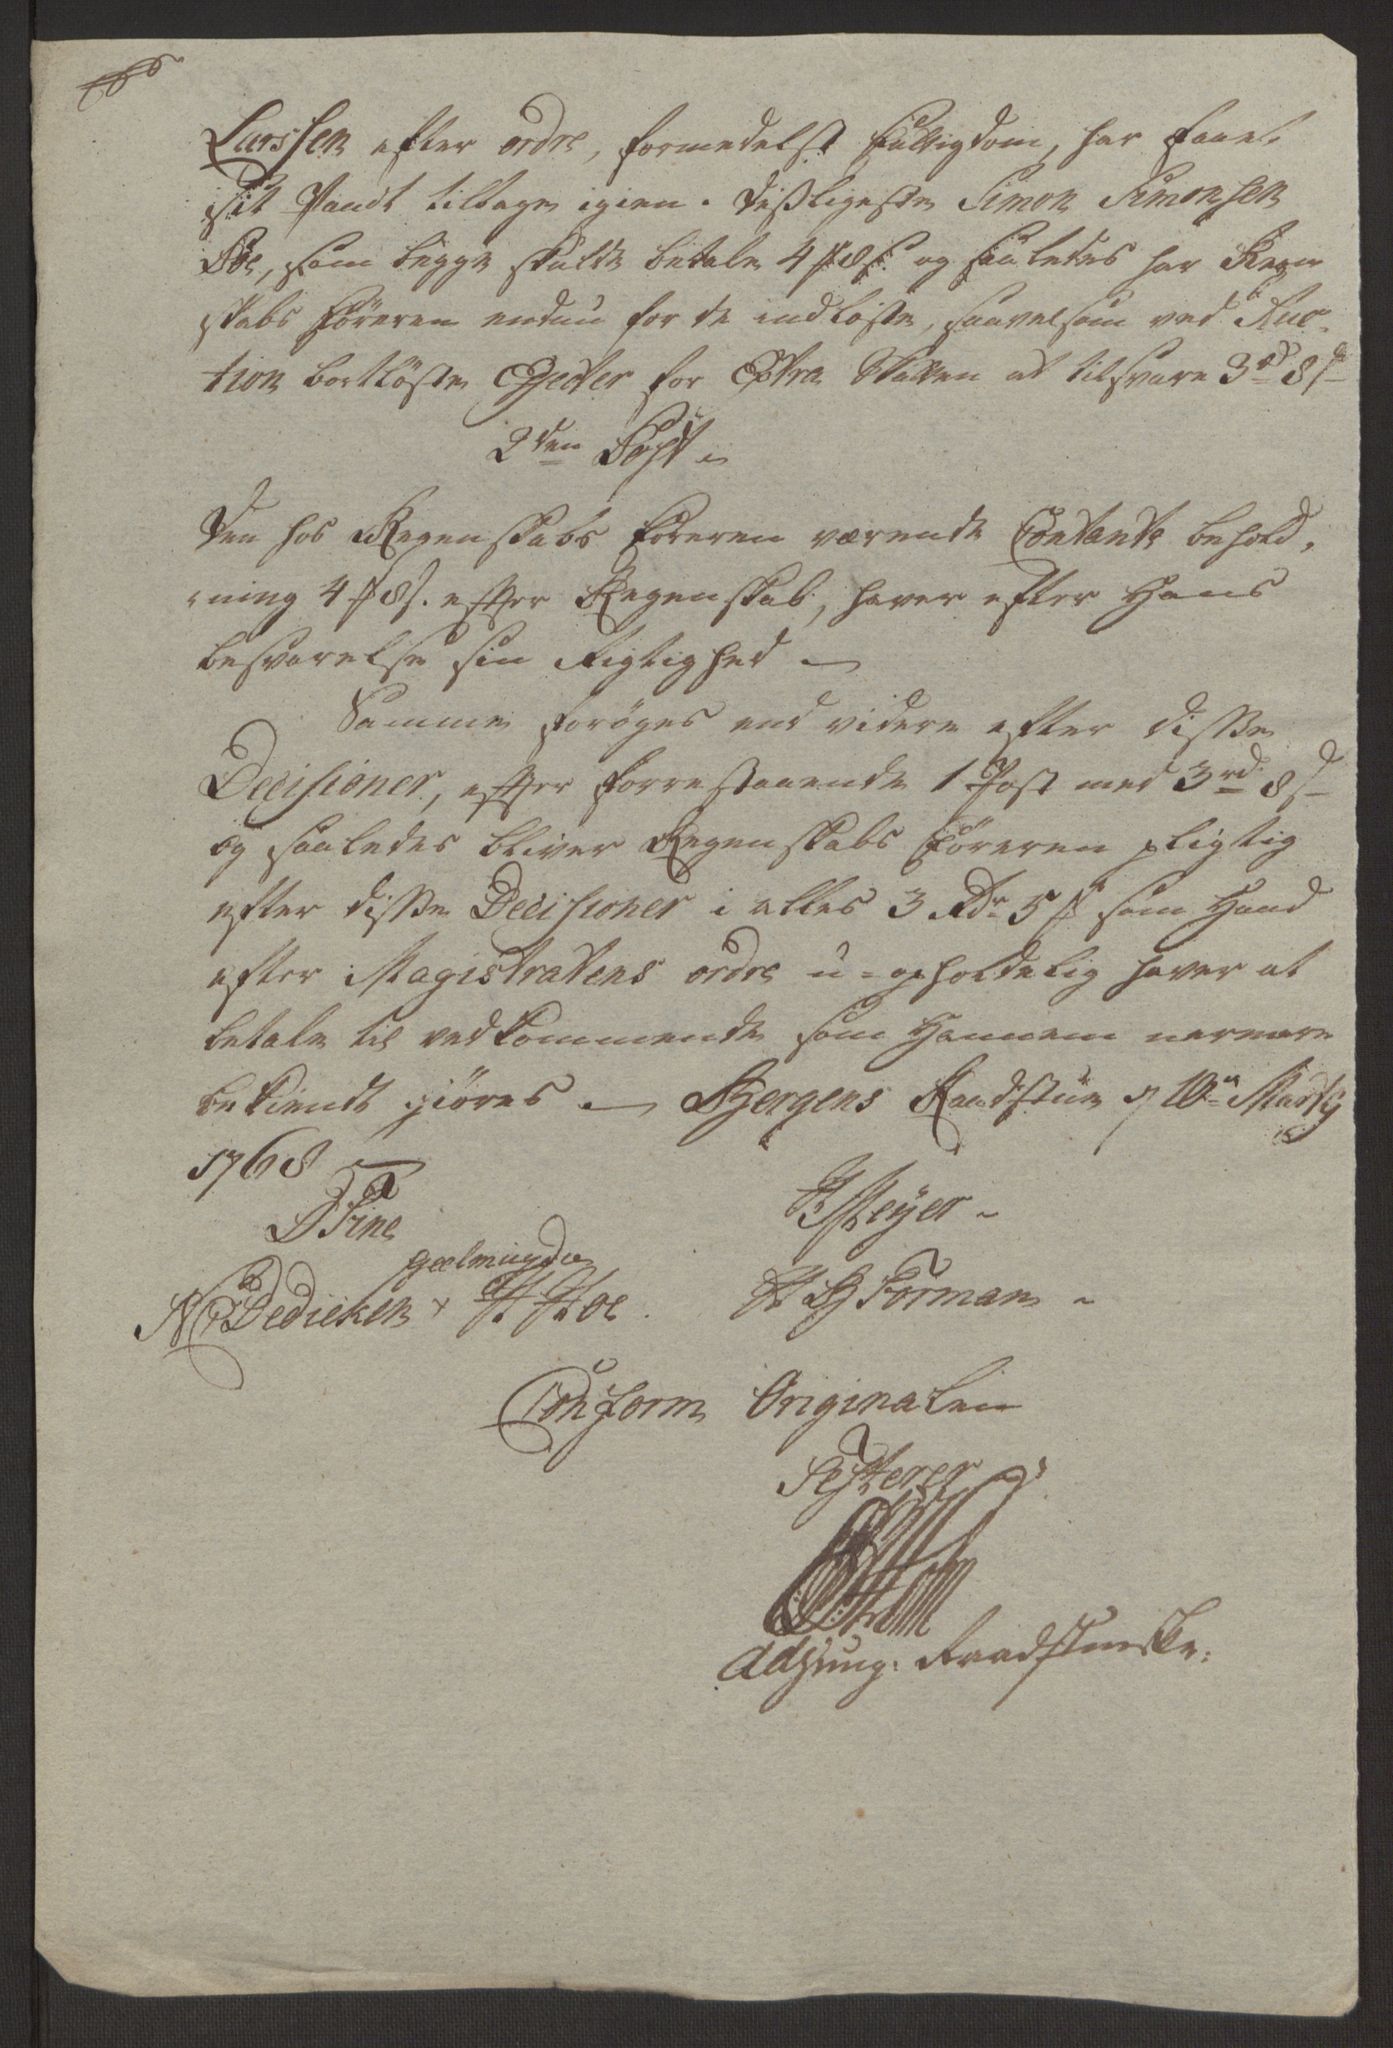 Larssen efter ordre, formedelst fattigdom, har faaet
sit Pandt tilbage igien. Desligeste Simon Simonsen
Bøe, som begge skulde betale 4 ß og saaledes har Regn
skabs føreren endnu for de indløste, saavelsom ved Auc-
tion bortløste Effecter for Extra Skatten at tilsvare 3 rd 8 s
2den Post
Den hos Regenskabs føreren værende Contante behold,
ning 4 s. effter Regenskab, haver efter Hans
besvarelse sin Rigtighed
Samme forøges end videre efter disse
Decisioner, effter forrestaaende 1 Post med 3 rd 8 s
og saaledes bliver Regenskabs føreren pligtig
efter disse Decisioner i alles 3 Rdr 5 som Hand
efter Magistratens ordre u-opholdelig haver at
betale til vedkommende som Hannem nermere
bekiendt giøres. Bergens Raadstue d 10en Martÿ
1768
DFine
H Meÿer
Geelmuyden
N Dedichen H Hoe. H B Forman
Conform Originalen
Testerer
Adjung: Raadstueskr: